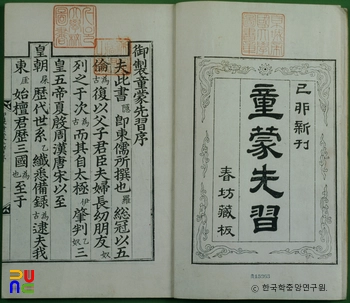 己卯新刊
童蒙先習
春坊藏板
御製童蒙先習序
夫此書 即東儒所撰也 總冠以五
倫 復以父子君臣夫婦長幼朋友
列之于次 而其自太極 肇判 三
皇五帝夏殷周漢唐宋以至
皇朝 歷代世系 纖悉備錄 逮夫我
東 始檀君歷三國 至于
©한국학중앙연구원